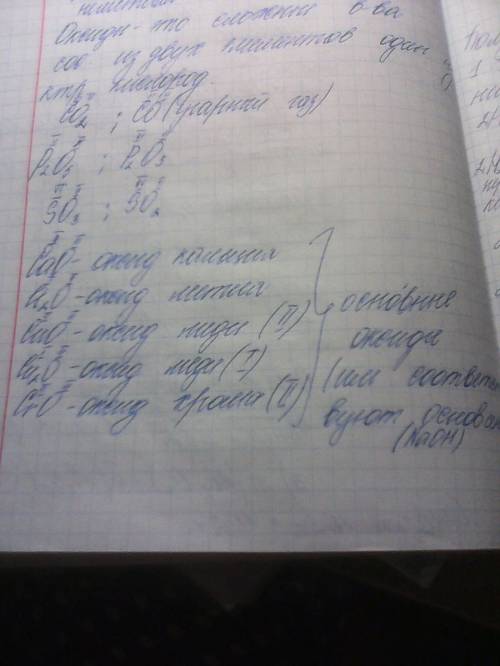 неметалл
Оксиды - это сложные в-ва
сос из двух элементов один
ктр кислород.
CO₂ ; CO (угарный газ)
P₂O₅ ; P₂O₃
SO₃ ; SO₂
CaO - оксид кальция
Li₂O - оксид лития
CuO - оксид меди (II)
Cu₂O - оксид меди (I)
CrO - оксид хрома (II)
основные
оксиды
(им соответс
вуют основан
(NaOH)